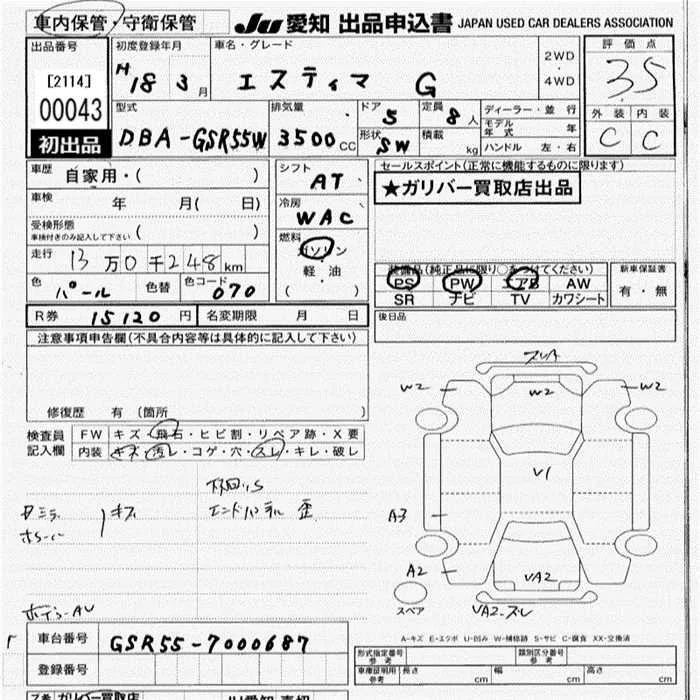 車内保管・守衛保管
JU 愛知 出品申込書 JAPAN USED CAR DEALERS ASSOCIATION
出品番号
[2114]
00043
初出品
初度登録年月
H18 3月
車名・グレード
エスティマ G
2WD
・
4WD
評価点
3.5
外装 内装
C C
型式
DBA-GSR55W
排気量
3500CC
ドア 5
定員 8人
形状 SW
積載 kg
ディーラー・並行
モデル年式 年
ハンドル 左・右
車歴 自家用・( )
車検 年 月( 日)
受検形態
車検付きのみ記入して下さい ( )
走行 13万0千248km
色 パール 色替 色コード 070
シフト AT
冷房 WAC
燃料
ガソリン
・
軽・油
( )
セールスポイント(正常に機能するものに限ります)
★ガリバー買取店出品
装備品(純正品に限り○をつけてください)
PS PW エアB AW
SR ナビ TV カワシート
新車保証書
有・無
R券 15120円 名変期限 月 日
後日品
注意事項申告欄(不具合内容等は具体的に記入して下さい)
修復歴 有 (箇所 )
検査員記入欄
FW キズ・飛石・ヒビ割・リペア跡・X要
内装 キズ・汚レ・コゲ・穴・スレ・キレ・破レ
エンドパネル 歪
キズ
スレA
W2 W2 W2
V1
A3
A2
VA2
スペア
VA2-スレ
A-キズ E-エクボ U-凹み W-補修跡 S-サビ C-腐食 XX-交換済
車台番号 GSR55-7000687
登録番号
形式指定番号
参考
類別区分番号
参考
車庫証明用
参考
長さ cm 幅 cm 高さ cm
ガリバー買取店
JU愛知